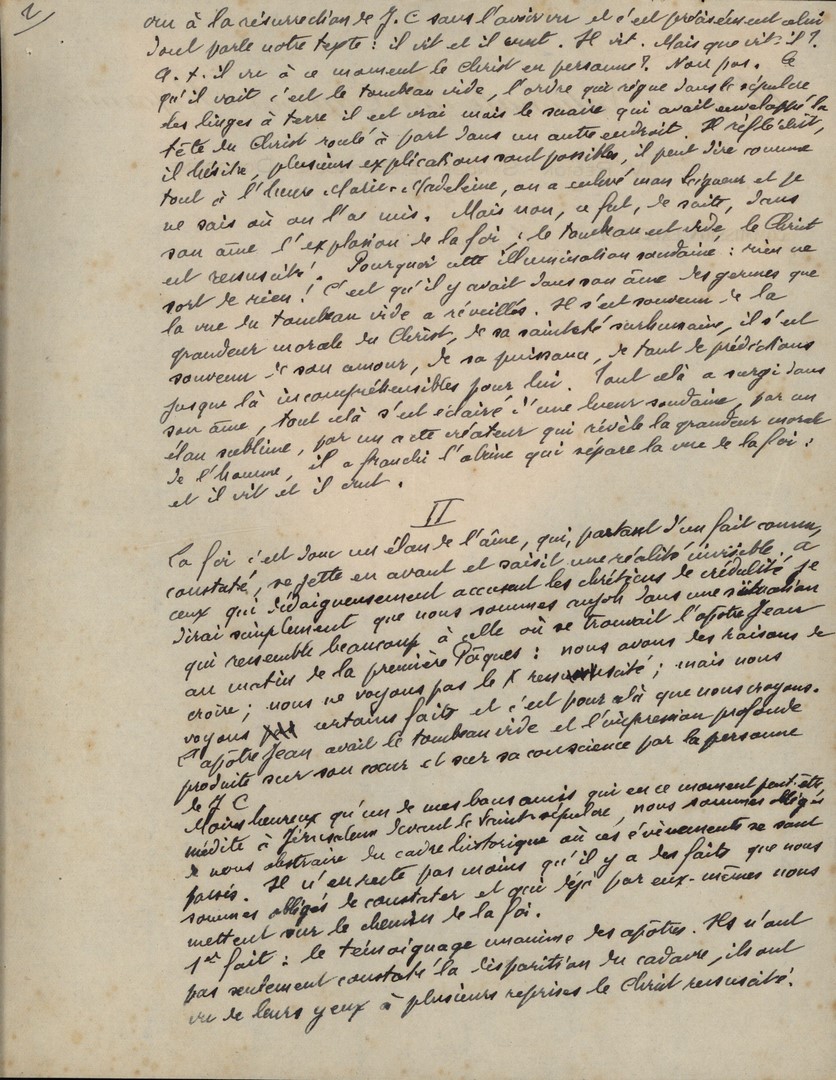 2/
cru à la résurrection de J. C sans l'avoir vu et c'est précisément celui
dont parle notre texte : il vit et il crut. Il vit. Mais que vit-il ?
A-t-il vu à ce moment le Christ en personne ? Non pas. Ce
qu'il voit c'est le tombeau vide, l'ordre qui règne dans le sépulcre
des linges à terre il est vrai mais le suaire qui avait enveloppé la
tête du Christ roulé à part dans un autre endroit. Il réfléchit,
il hésite, plusieurs explications sont possibles, il peut dire comme
tout à l'heure Marie-Madeleine, on a enlevé mon Seigneur et je
ne sais où on l'a mis. Mais non, ce fut, de suite, dans
son âme l'explosion de la foi ; le tombeau est vide, le Christ
est ressuscité ! Pourquoi cette illumination soudaine : rien ne
sort de rien ! C'est qu'il y avait dans son âme des germes que
la vue du tombeau vide a réveillés. Il s'est souvenu de la
grandeur morale du Christ, de sa sainteté surhumaine, il s'est
souvenu de son amour, de sa puissance, de tant de prédictions
jusque là incompréhensibles pour lui. Tout celà a surgi dans
son âme, tout celà s'est éclairé d'une lueur soudaine, par un
élan sublime, par un acte créateur qui révèle la grandeur morale
de l'homme, il a franchi l'abîme qui sépare la vue de la foi :
et il vit et il crut.
II
La foi c'est donc un élan de l'âme, qui, partant d'un fait connu,
constaté, se jette en avant et saisit une réalité invisible. A
ceux qui dédaigneusement accusent les chrétiens de crédulité, je
dirai simplement que nous sommes aujoh dans une situation
qui ressemble beaucoup à celle où se trouvait l'apôtre Jean
au matin de la première Pâques : nous avons des raisons de
croire ; nous ne voyons pas le X ressuscité ; mais nous
voyons certains faits et c'est pour celà que nous croyons.
L'apôtre Jean avait le tombeau vide et l'impression profonde
produite sur son cœur et sur sa conscience par la personne
de J C
Moins heureux qu'un de mes bons amis qui en ce moment peut-être
médite à Jérusalem devant le Saint-sépulcre, nous sommes obligés
de nous abstraire du cadre historique où ces évènements se sont
passés. Il n'en reste pas moins qu'il y a des faits que nous
sommes obligés de constater et qui déjà par eux-mêmes nous
mettent sur le chemin de la foi.
1er fait : le témoignage unanime des apôtres. Ils n'ont
pas seulement constaté la disparition du cadavre, ils ont
vu de leurs yeux à plusieurs reprises le Christ ressuscité.